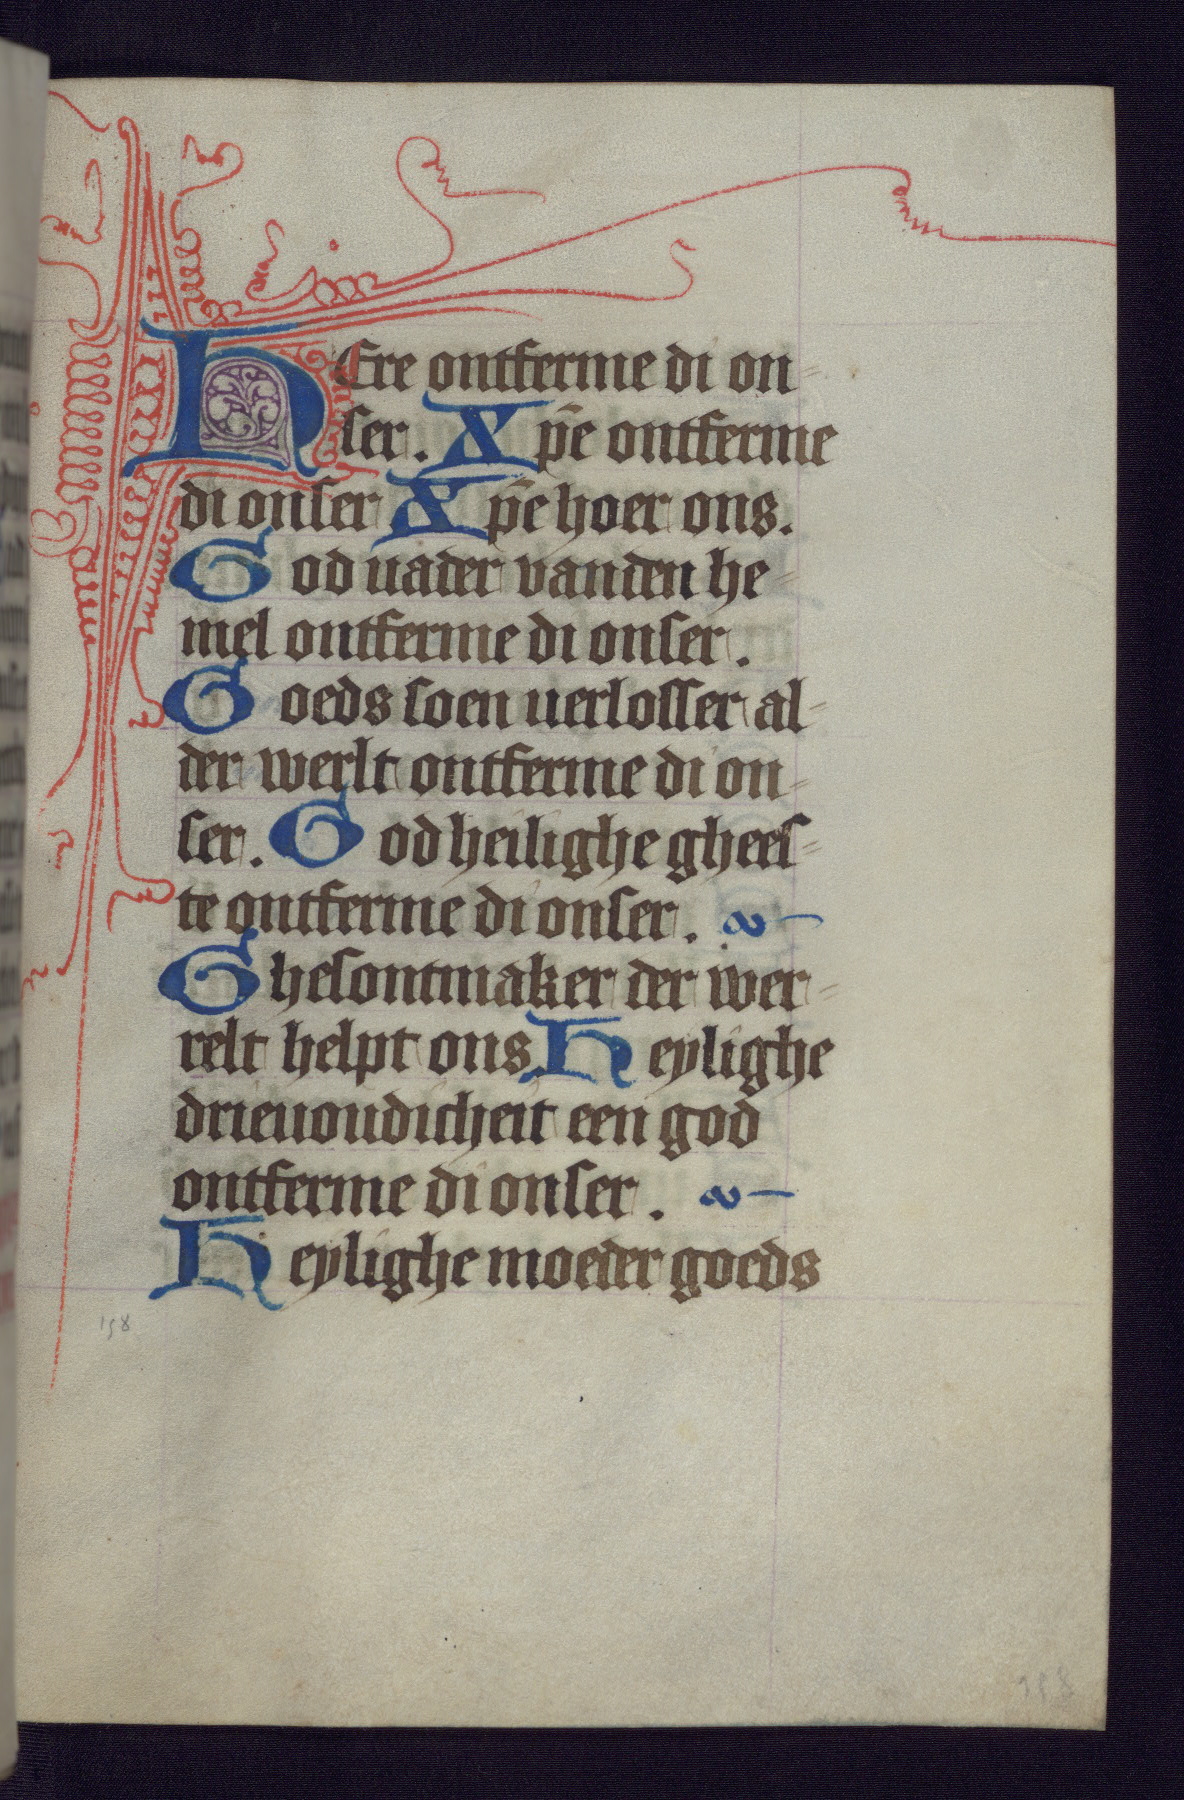 HEre ontferme di on=
ser. Xp̄e ontferme
di onser Xp̄e hoer ons.
God uader vanden he=
mel ontferme di onser.
Goeds soen uerlosser al=
der werlt ontferme di on=
ser. God heilighe ghees=
te ontferme di onser.
Ghesontmaker der wer=
relt helpt ons. Heylighe
drieuoudicheit een god
ontferme di onser.
Heylighe moeder goeds
158
158